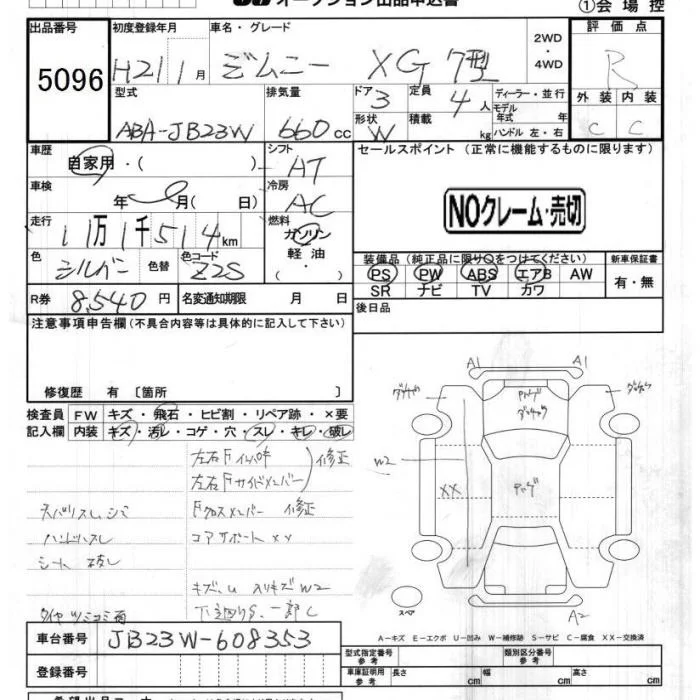 オークション出品申込書
①会場控
出品番号 初度登録年月 車名・グレード 2WD ・ 4WD 評価点
5096 H21 1月 ジムニー XG 7型 R
型式 排気量 ドア 3 定員 4人 ディーラー・並行 外装 内装
ABA-JB23W 660cc 形状 W 積載 kg モデル年式 年 ハンドル 左・右 C C
車歴 自家用・( ) シフト AT セールスポイント (正常に機能するものに限ります)
車検 年 月( 日) 冷房 AC NOクレーム・売切
走行 11万1千514km 燃料 ガソリン
色 シルバー 色替 色コード Z2S 軽油 ・( ) 装備品 (純正品に限り○をつけてください) 新車保証書
PS PW ABS エアB AW 有・無
R券 8,540円 名変通知期限 月 日 SR ナビ TV カワ
注意事項申告欄(不具合内容等は具体的に記入して下さい) 後日品
修復歴 有 〔箇所 〕
検査員 FW キズ・飛石・ヒビ割・リペア跡・×要
記入欄 内装 キズ・汚レ・コゲ・穴・スレ・キレ・破レ
左右Fインパネ 修正
左右Fサイドメンバー
ステアリスレ シバ Fクロスメンバー 修正
ハンドルスレ コアサポートXX
シート 破レ
キズ、U 入りキズW2
タイヤ 下廻りS、一部C
A1 A1
W2 XX
A2
スペア
A-キズ E-エクボ U-凹み W-補修跡 S-サビ C-腐食 XX-交換済
車台番号 JB23W-608353
型式指定番号 参考 類別区分番号 参考
登録番号 車庫証明用 参考 長さ cm 幅 cm 高さ cm